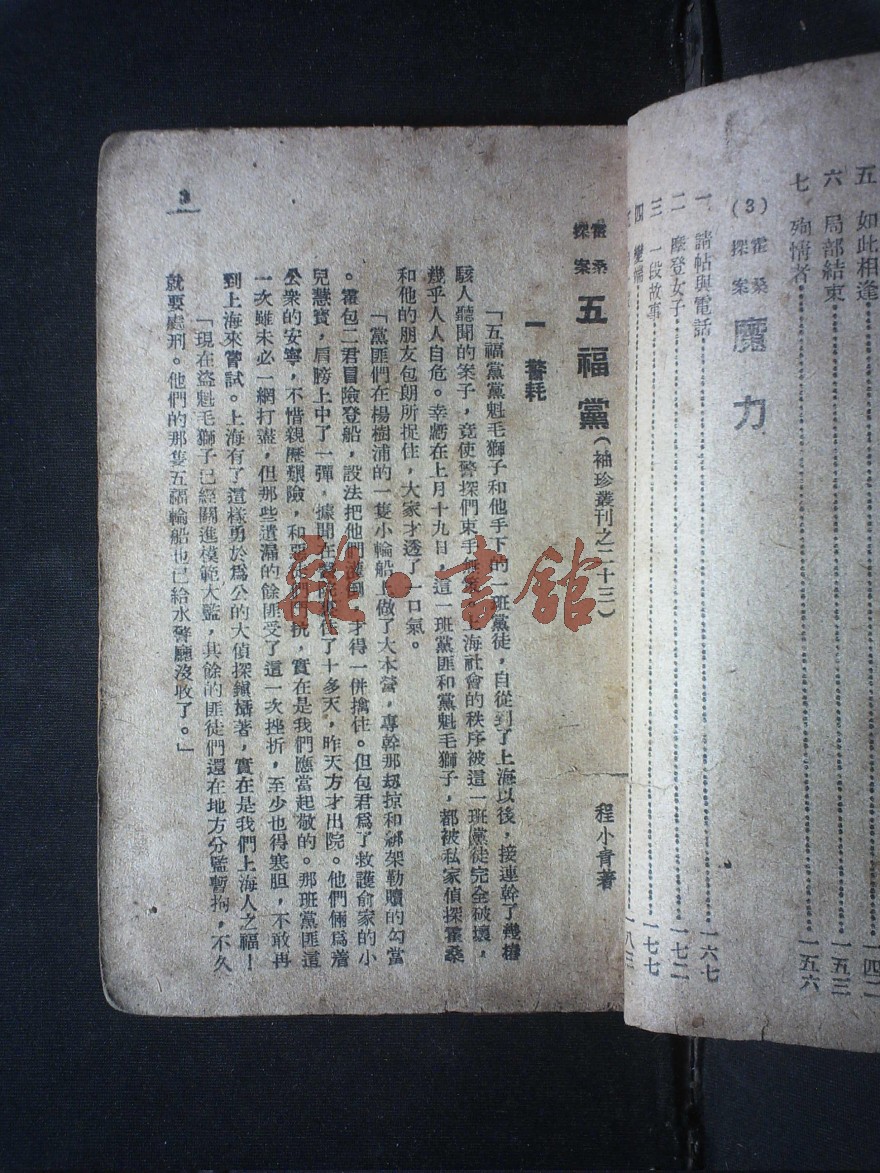 五 如此相逢 一四二
六 局部結束 一五三
七 殉情者 一五六
(3) 霍桑探案 魔力
一 請帖與電話 一六七
二 摩登女子 一七二
三 一段故事 一七七
四 變 一八三
霍桑探案 五福黨(袖珍叢刊之二十三) 程小青著
一 警耗
「五福黨黨魁毛獅子和他手下的一班黨徒，自從到了上海以後，接連幹了幾樁
駭人聽聞的案子，竟使警探們束手無策，上海社會的秩序被這一班黨徒完全破壞，
幾乎人人自危。幸虧在上月十九日，這一班黨匪和黨魁毛獅子，都被私家偵探霍桑
和他的朋友包朗所捉住，大家才透了一口氣。
「黨匪們在楊樹浦的一隻小輪船上做了大本營，專幹那刼掠和綁架勒贖的勾當
。霍包二君冒險登船，設法把他們 倒，才得一併擒住。但包君爲了救護俞家的小
兒慧寶，肩膀上中了一彈，據聞在醫院 住了十多天，昨天方才出院。他們倆爲着
公衆的安寧，不惜親歷艱險，和惡 們 抗，實在是我們應當起敬的。那班黨匪這
一次雖未必一網打盡，但那些遺漏的餘匪受了這一次挫折，至少也得寒胆，不敢再
到上海來嘗試。上海有了這樣勇於爲公的大偵探鎮攝著，實在是我們上海人之福！
「現在盜魁毛獅子已經關進模範大監，其餘的匪徒們還在地方分監暫拘，不久
就要處刑。他們的那隻五福輪船也已給水警廳沒收了。」
3
雜·書館